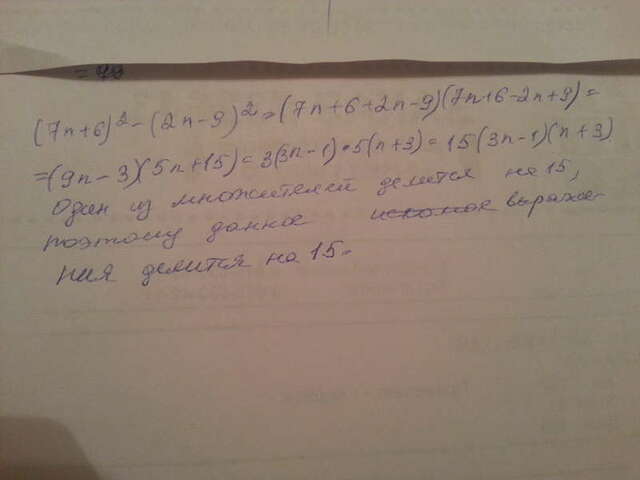 = 49
(7n+6)² - (2n-9)² = (7n+6+2n-9)(7n+6-2n+9) =
=(9n-3)(5n+15) = 3(3n-1)·5(n+3) = 15(3n-1)(n+3)
Один из множителей делится на 15,
поэтому данное искомое выраже-
ния делится на 15.